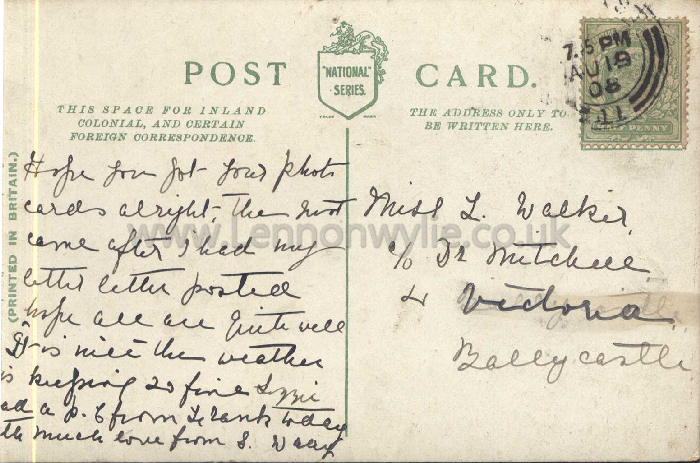 POST CARD.
"NATIONAL" SERIES
THIS SPACE FOR INLAND
COLONIAL, AND CERTAIN
FOREIGN CORRESPONDENCE.
THE ADDRESS ONLY TO
BE WRITTEN HERE.
(PRINTED IN BRITAIN.)
7.5 PM
AU 19
08
PENNY
Hope you got your photo
cards alright, the
came after I had my
letter letter posted
hope all are quite well
It is nice the weather
is keeping so fine Lizzie
had a P.C from Frank today
with much love from S.
Miss L. Walker,
c/o Dr Mitchell
4 Victoria
Ballycastle
www.Lennonwylie.co.uk